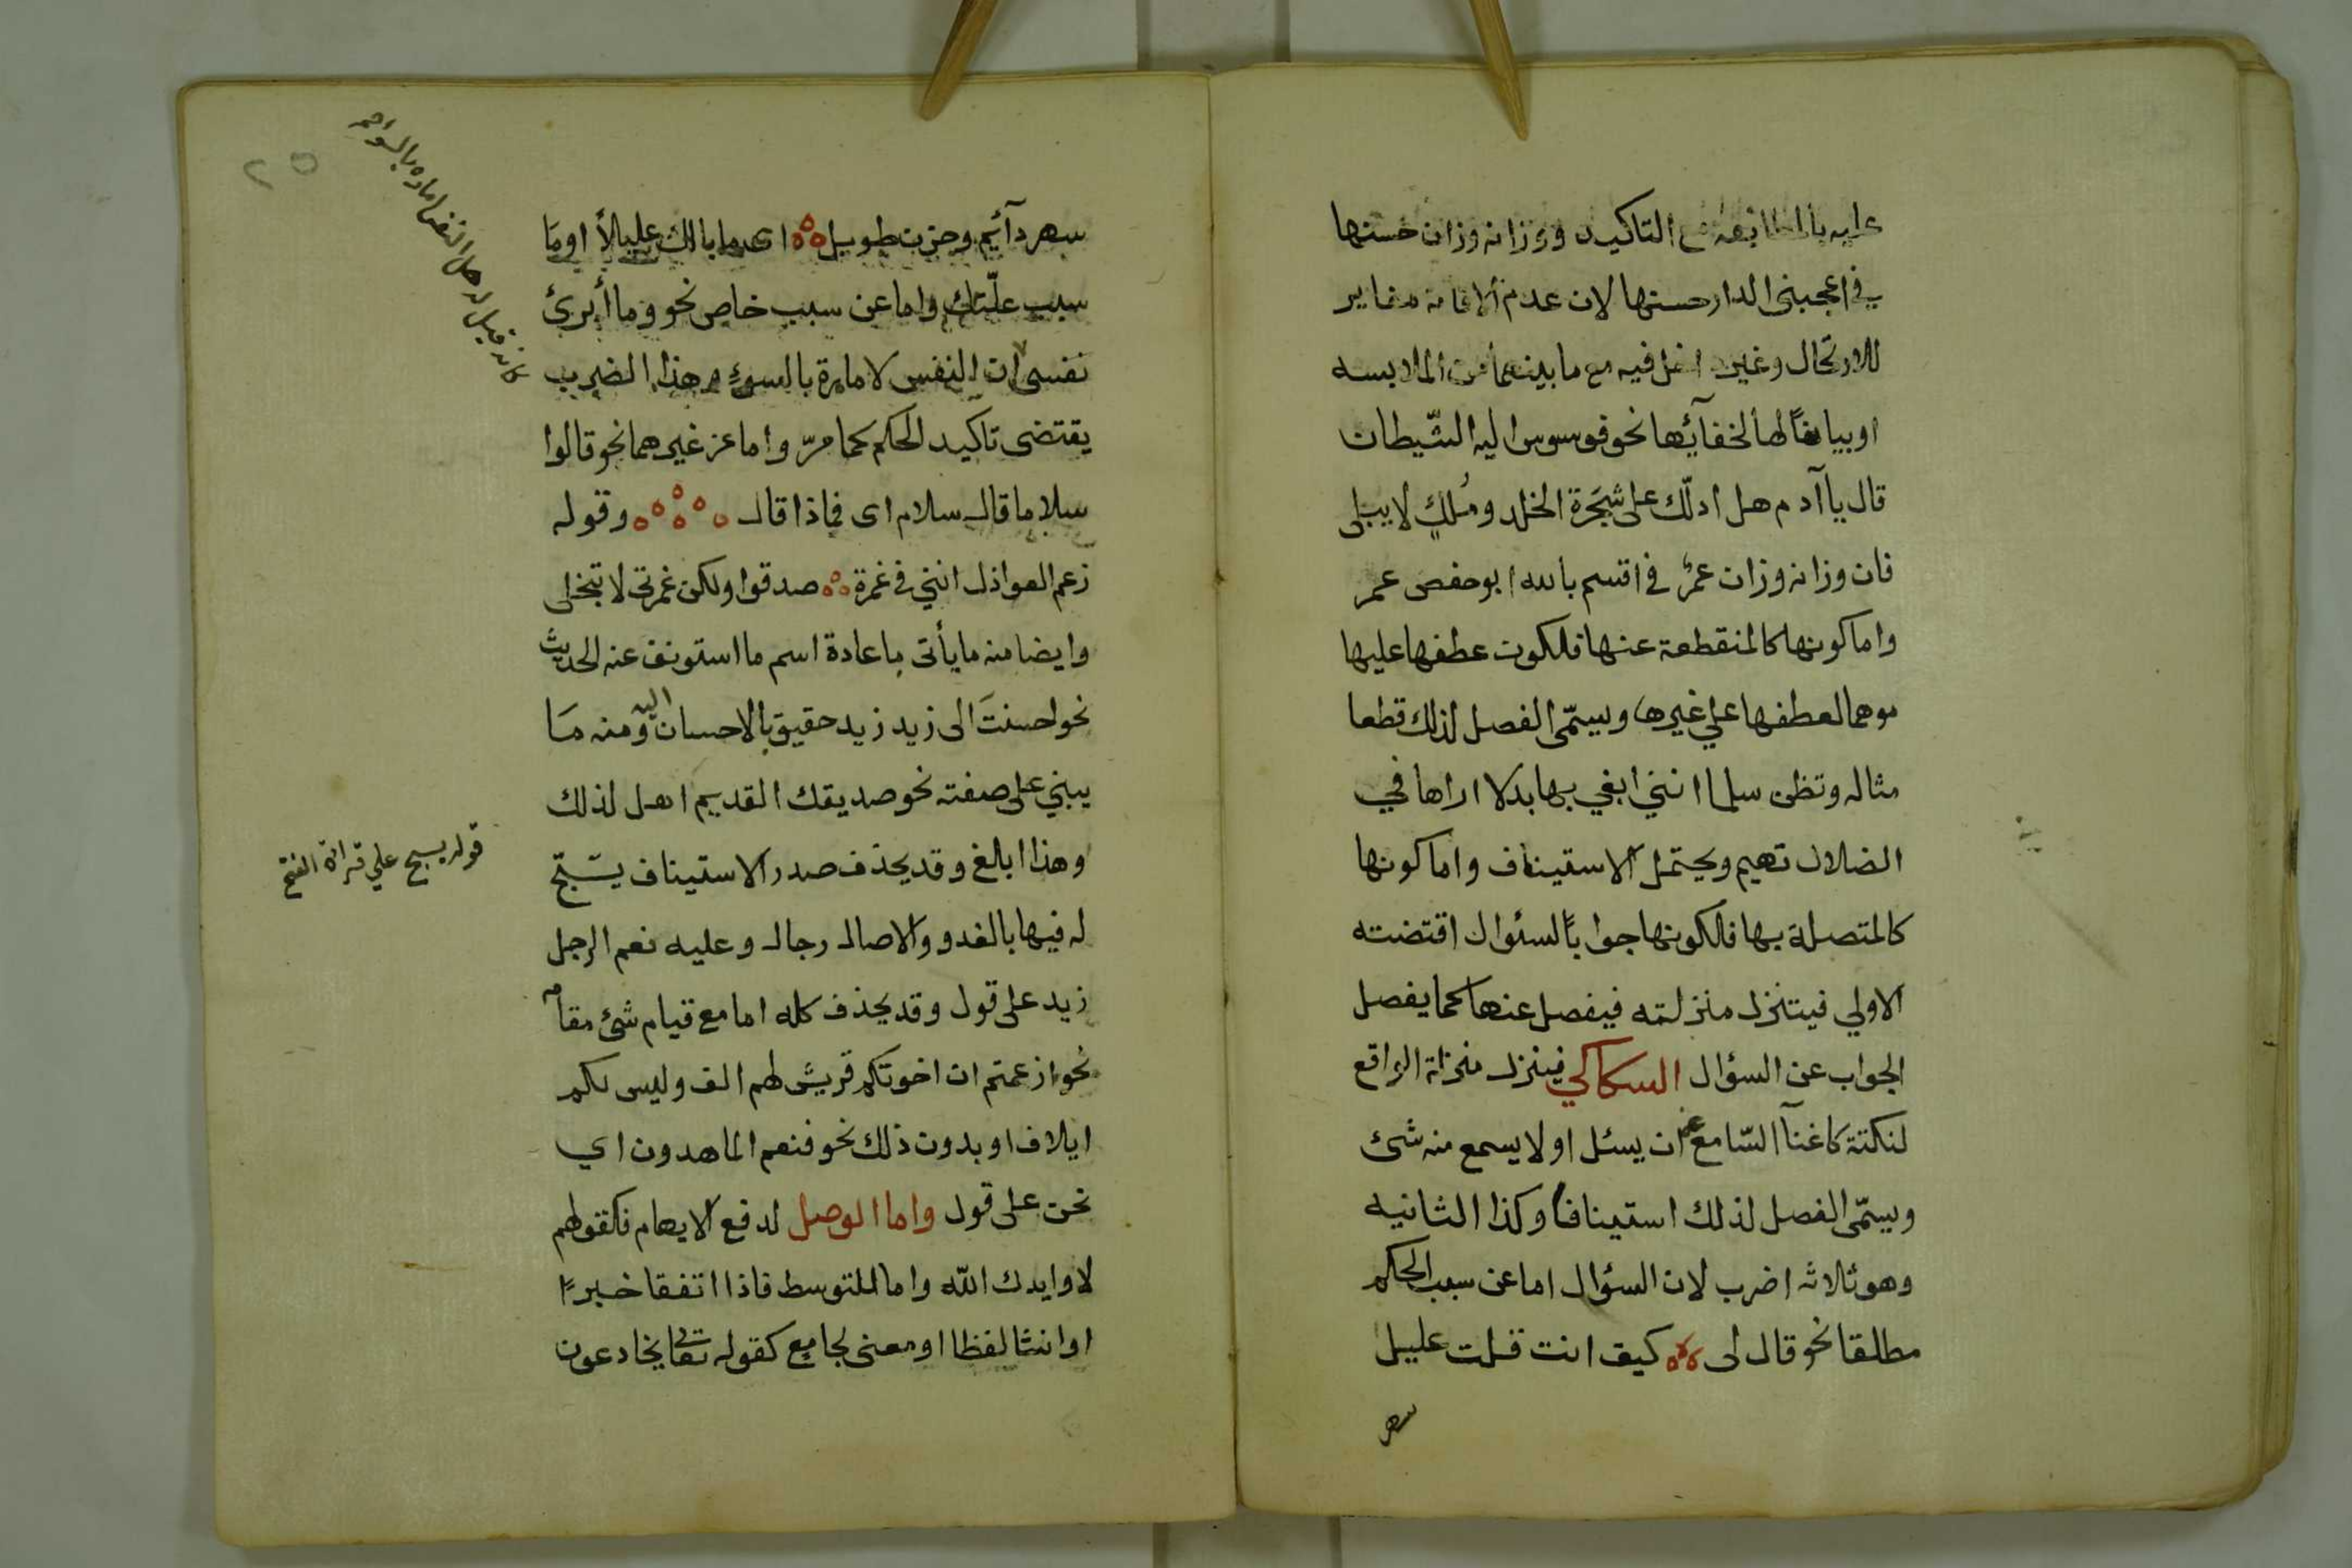 عليه بالمطابقة مع التاكيد ووزانه وزان حسنها
في اعجبنى الدار حسنها لان عدم الاقامة مغاير
للارتحال وغير داخل فيه مع ما بينهما من الملابسه
او بيانا لها لخفآئها نحو فوسوس اليه الشّيطان
قال ياآدم هل ادلّك على شجَرة الخلد ومُلكٍ لا يبلى
فان وزانه وزان عمرُ في اقسم بالله ابو حفص عمر
واما كونها كالمنقطعة عنها فلكون عطفها عليها
موهما لعطفها علي غيرها ويسمّى الفصل لذلك قطعا
مثاله وتظن سلما اننى ابغي بها بدلا اراها في
الضلال تهيم ويحتمل الاستيناف واما كونها
كالمتصلة بها فلكونها جوابًا لسئوال اقتضته
الاولي فيتنزل منزلته فيفصل عنها كما يفصل
الجواب عن السؤال السكاكي فينزل منزلة الواقع
لنكتة كاغنآ السّامع عن ان يسئل او لا يسمع منه شئ
ويسمّى الفصل لذلك استينافا وكذا الثانيه
وهو ثلاثه اضرب لان السؤال اما عن سبب الحكم
مطلقا نحو قال لى كيف انت قلت عليل
سهر
سهر دآئم وحزن طويل اى ما بالك عليلاً او مَا
سبب علّتك واما عن سبب خاص نحو وما أبرئ
نفسى ان النفس لامارة بالسوءِ وهذا الضرب
يقتضى تاكيد الحكم كما مرّ واما عن غيرهما نحو قالوا
سلاما قال سلام اى فماذا قال وقوله
زعم العواذل اننى في غمرة صدقوا ولكن غمرتى لا تنجلى
وايضا منه ما يأتى باعادة اسم ما استونف عنه الحديث
نحو احسنتَ الى زيد زيد حقيق بالاحسان اليه ومنه مَا
يبني على صفته نحو صديقك القديم اهل لذلك
وهذا ابلغ وقد يحذف صدر الاستيناف يسَبّح
له فيها بالغدو والاصال رجال وعليه نعم الرجل
زيد على قول وقد يحذف كله اما مع قيام شئ مقامه
نحو ازعمتم ان اخوتكم قريش لهم الف وليس لكم
ايلاف او بدون ذلك نحو فنعم الماهدون اي
نحن على قول واما الوصل لدفع الايهام فكقولهم
لا وايدك الله واما للتوسط فاذا اتفقا خبرًا
او انشا لفظا او معنى بجامع كقوله تعالى يخادعون
كانه قيل له هل النفس اماره بالسو
قوله يسبح علي قراة الفتح
٢٥